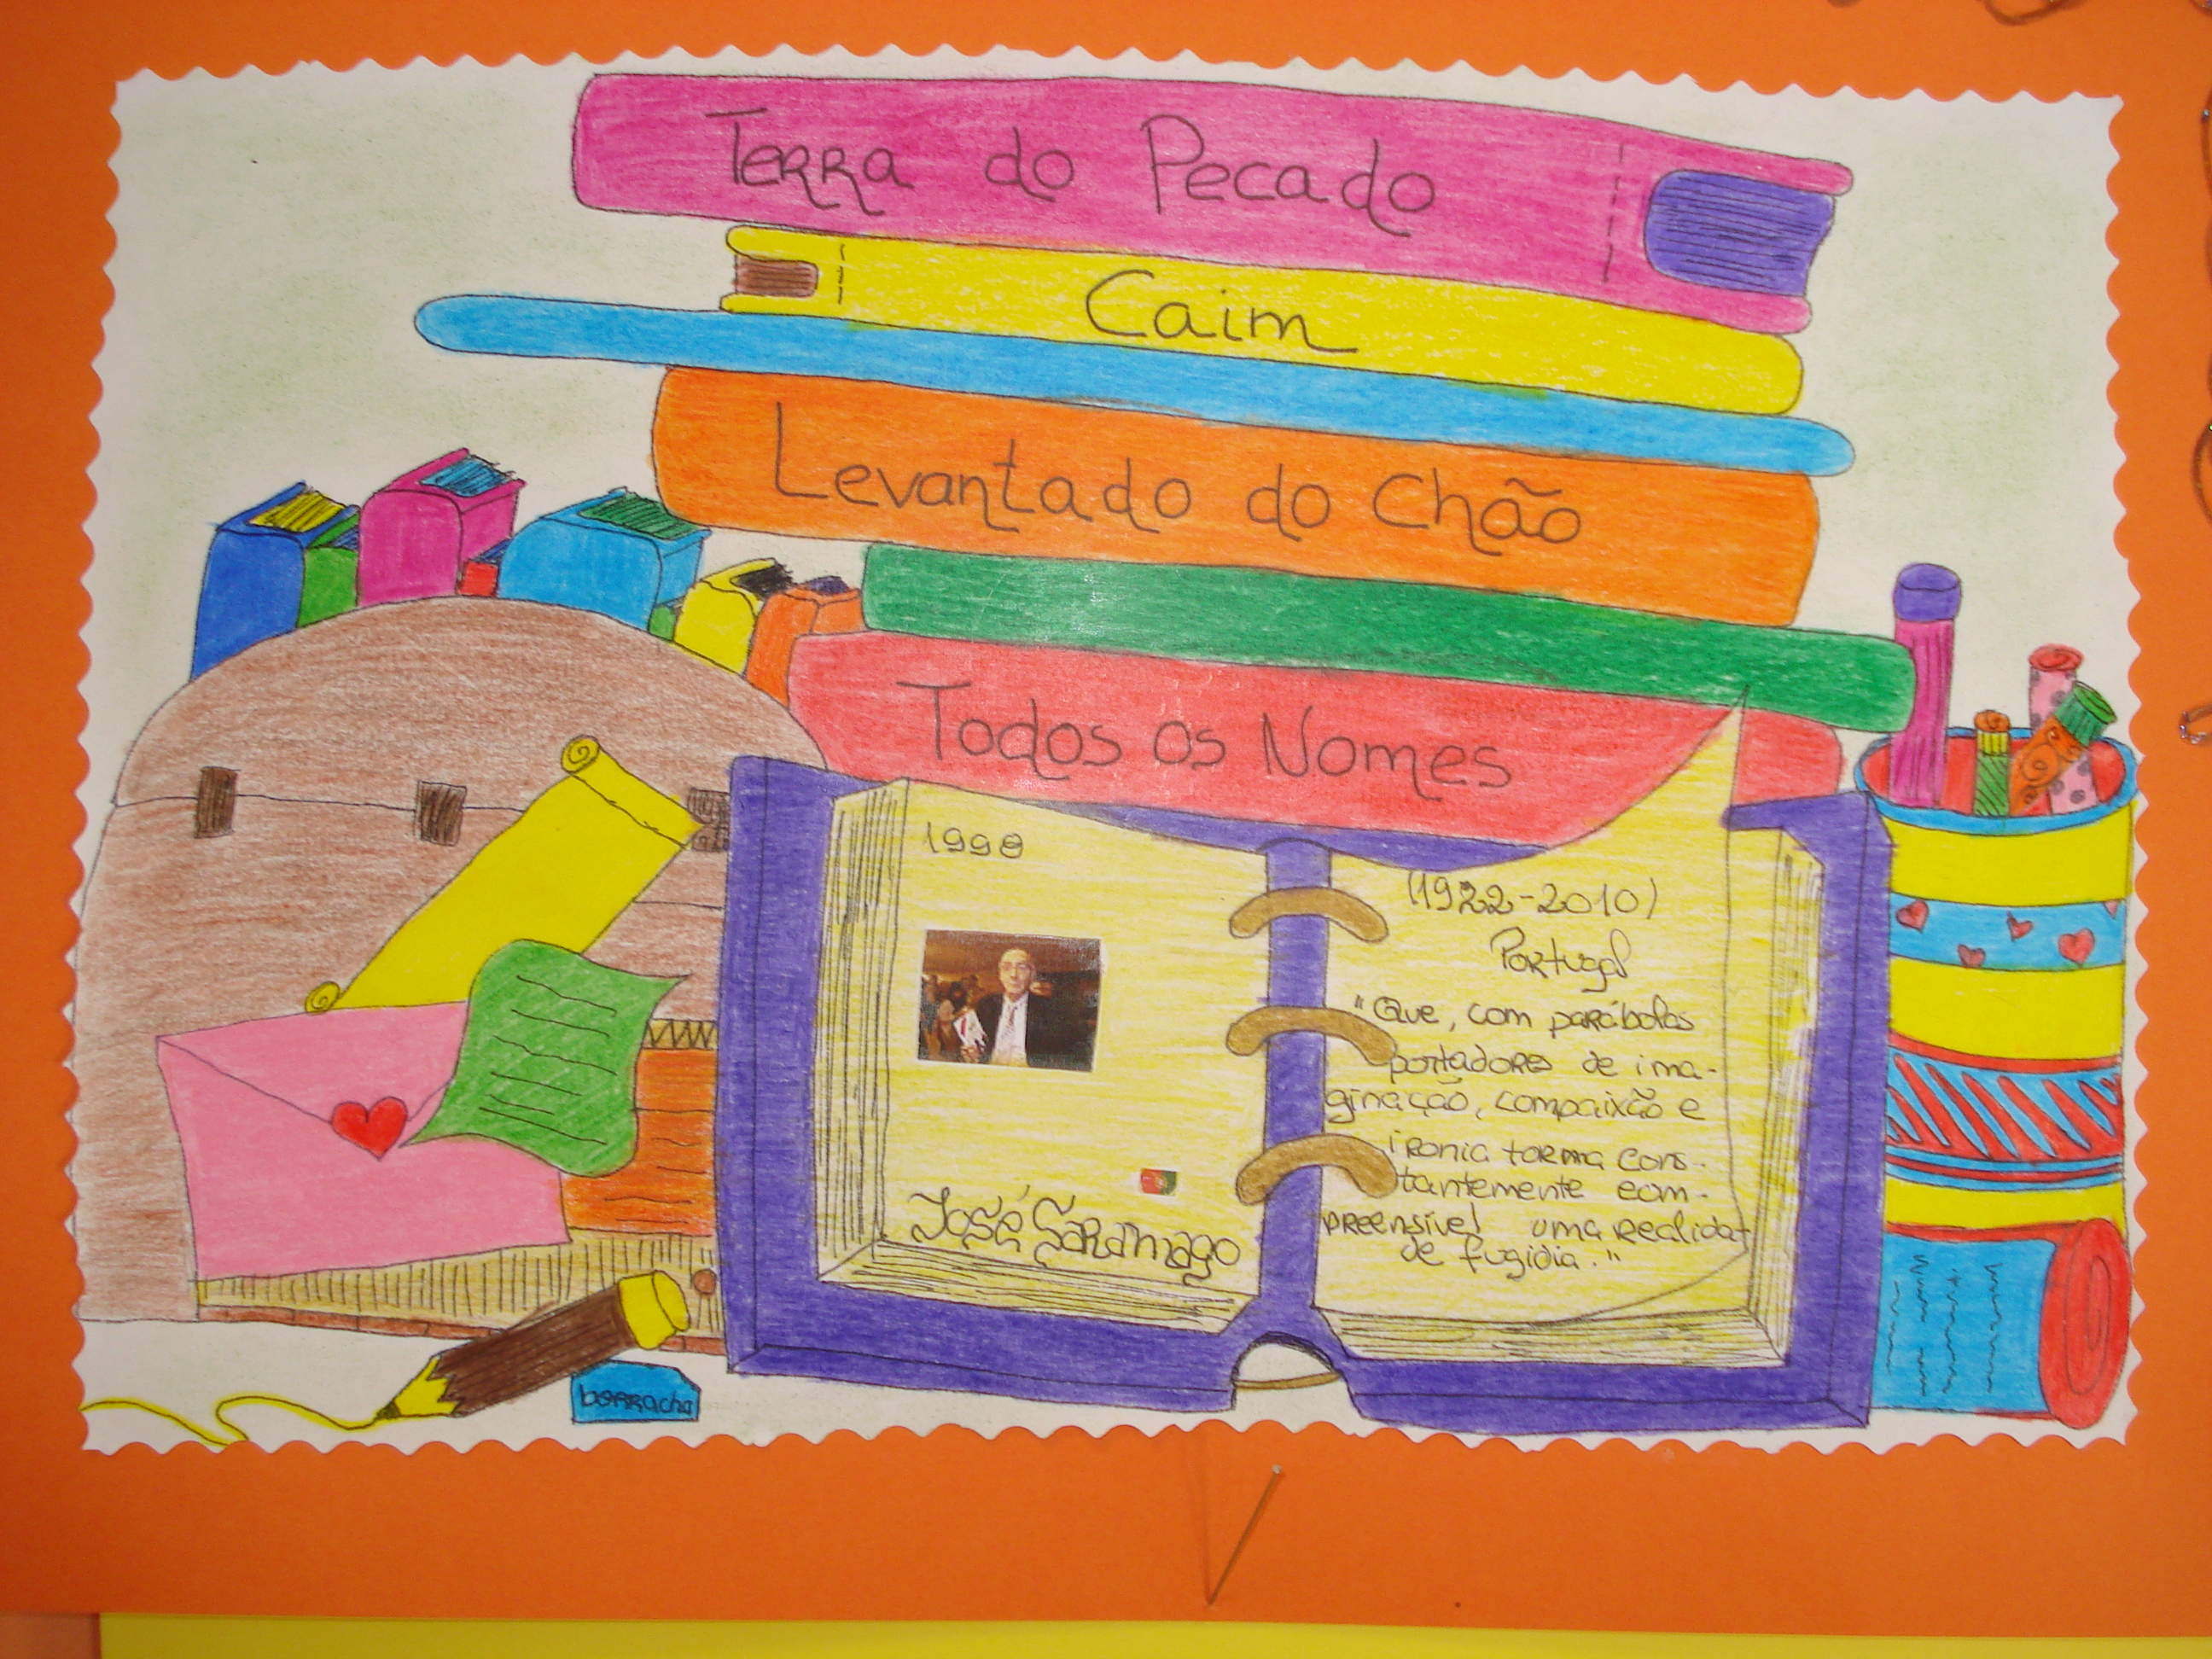 Terra do Pecado
Caim
Levantado do Chão
Todos os Nomes
1998
José Saramago
(1922-2010)
Portugal
"Que, com parábolas
portadores de ima-
ginação, compaixão e
ironia torma cons-
tantemente com-
preensível uma realida-
de fugidia."
borracha